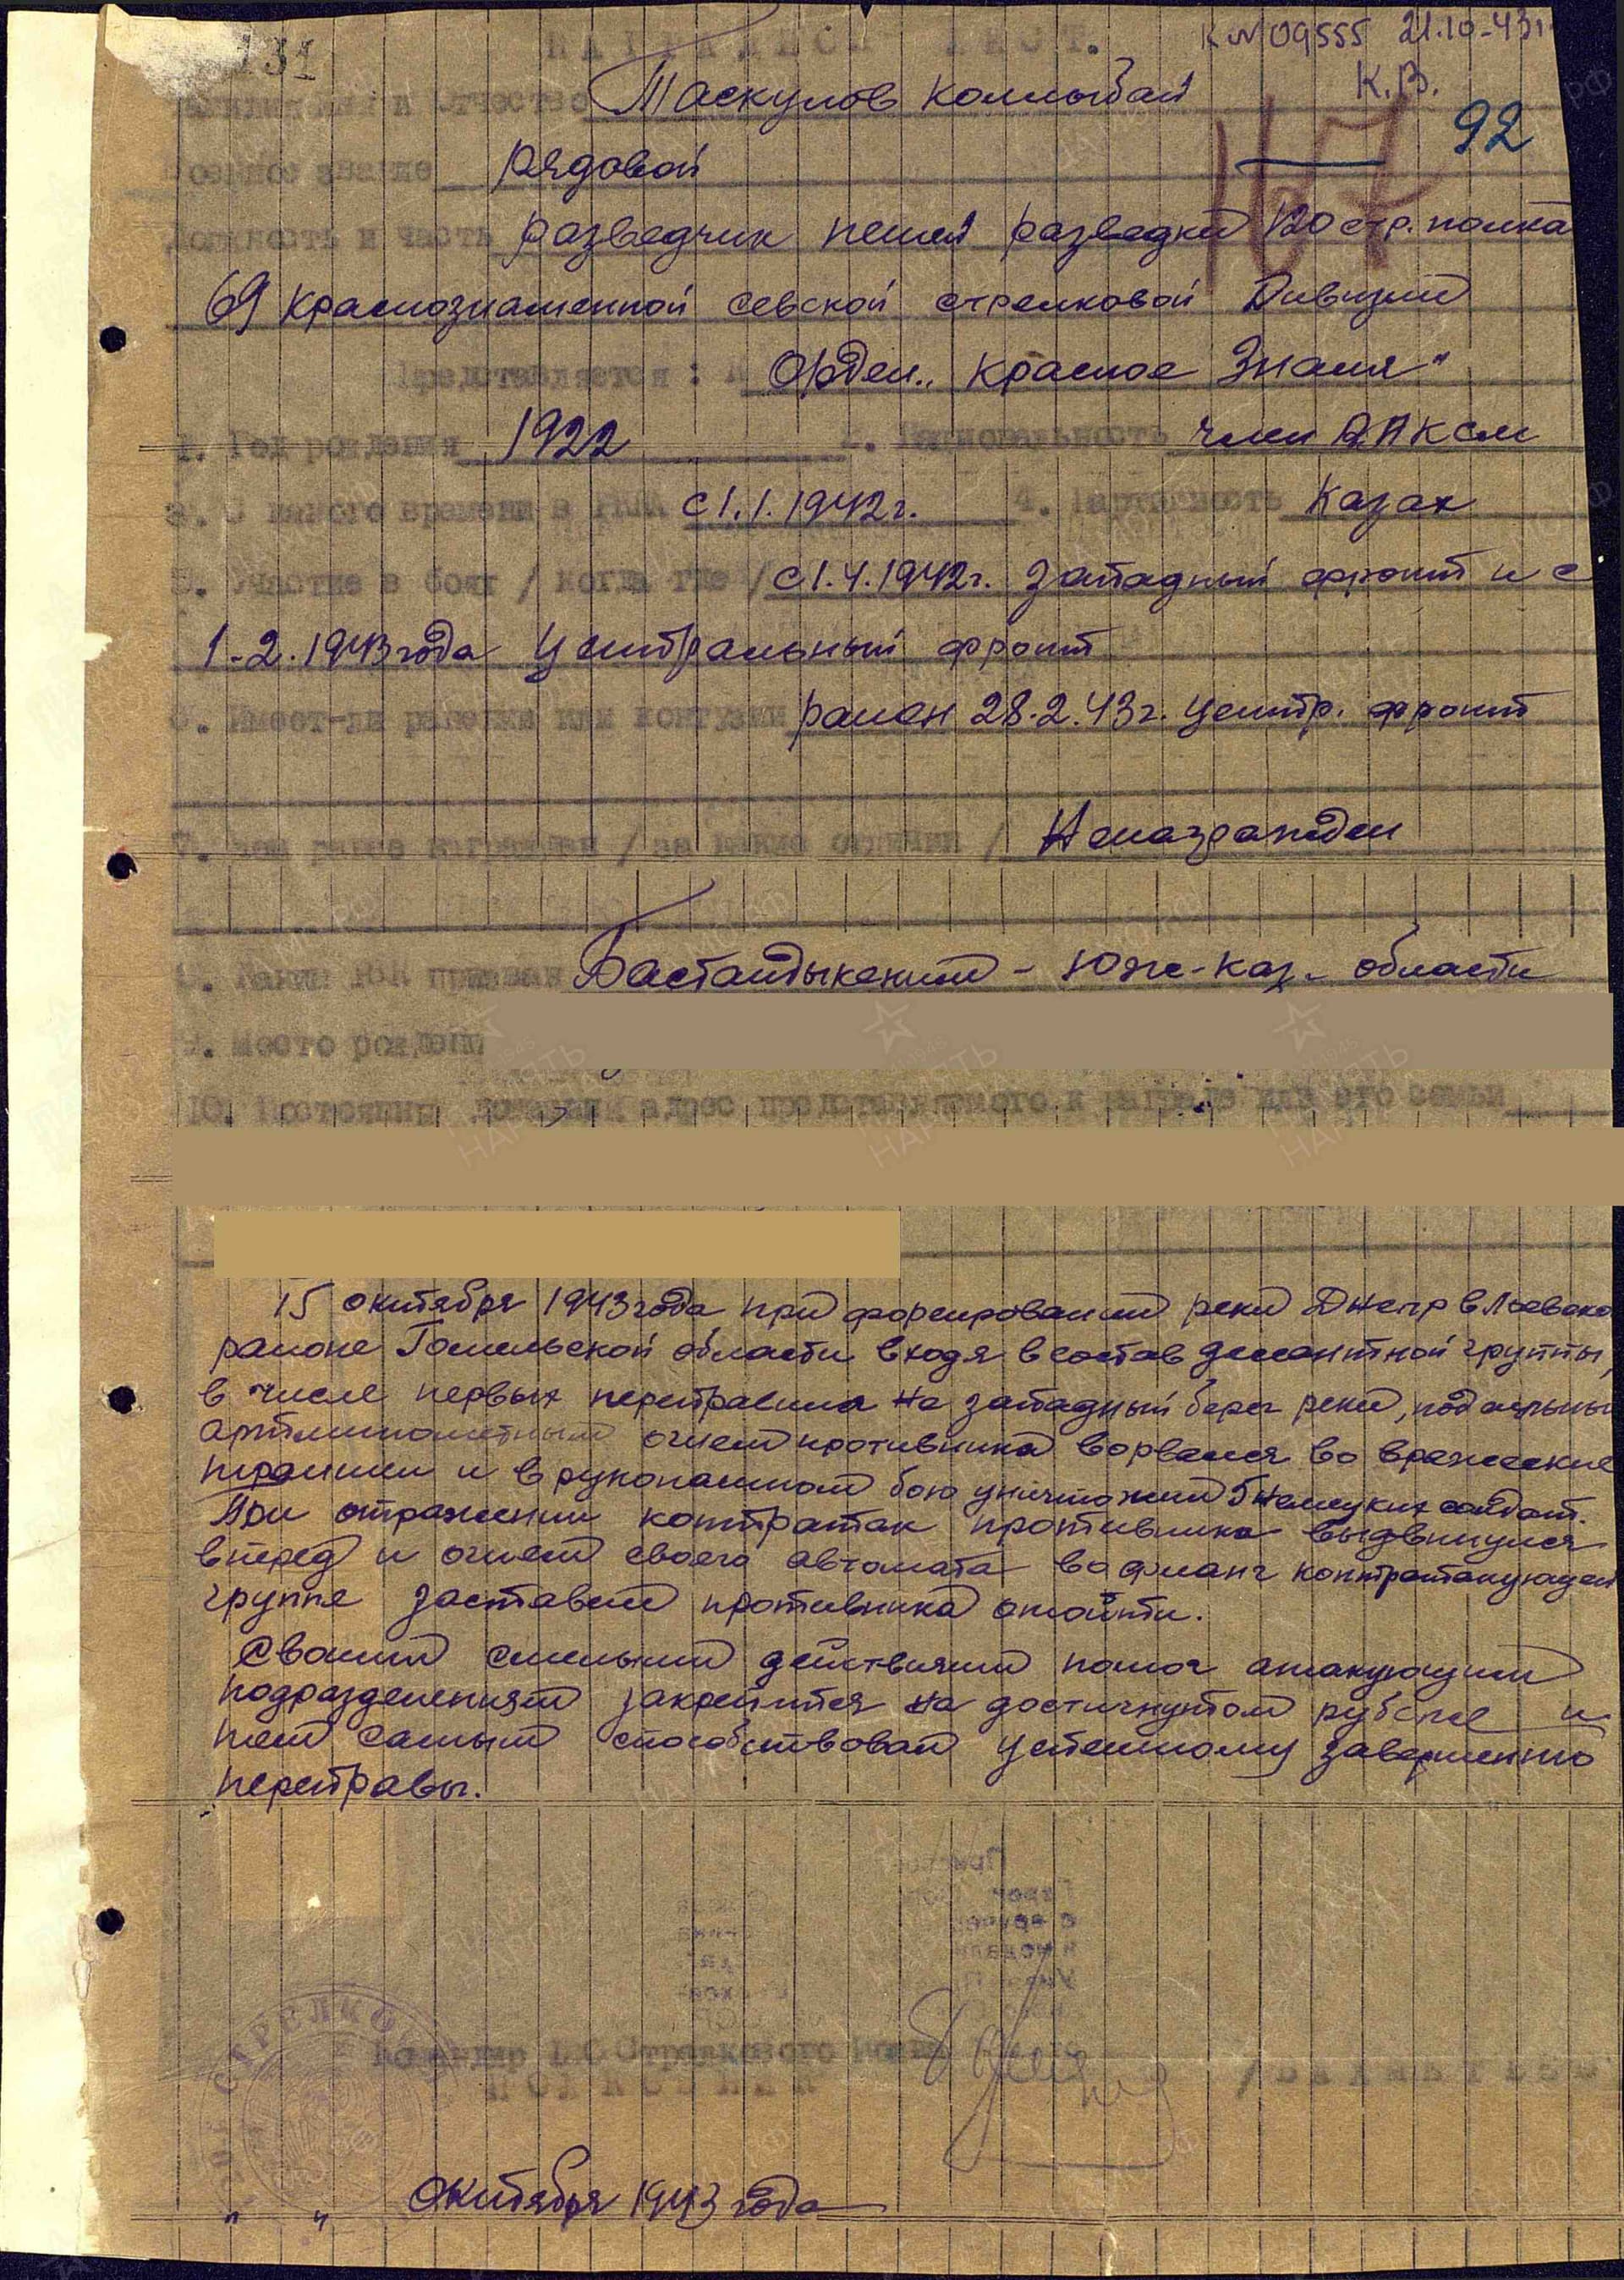 131
НАГРАДНОЙ ЛИСТ.
К № 09555 21.10-43г.
К.В.
Фамилия имя и отчество Таскулов Колмыбай
92
Военное звание рядовой
Должность и часть разведчик пешей разведки 120 стр. полка
69 Краснознаменной севской стрелковой Дивизии
Представляется: к Орден „Красное Знамя"
1. Год рождения 1922 2. Национальность член ВЛКСМ
3. С какого времени в РККА с 1.1.1942г. 4. Партийность Казах
5. Участие в боях / когда где / с 1.4.1942г. Западный фронт и с
1-2.1943 года Центральный фронт
6. Имеет-ли ранения или контузии ранен 28.2.43г. Центр. фронт
7. Чем ранее награжден / за какие отличия / Ненагражден
8. Каким РВК призван Бастандыкским - Юже-Каз. области
9. Место рождения
10. Постоянный домашний адрес представляемого к награде или его семьи
15 октября 1943 года при форсировании реки Днепр в Лоевско
районе Гомельской области входя в состав десантной группы,
в числе первых переправился на западный берег реки, под сильны
артминометным огнем противника ворвался во вражеские
траншеи и в рукопашном бою уничтожил 5 немецких солдат.
При отражении контратак противника выдвинулся
вперед и огнем своего автомата во фланг контратакующей
группе заставил противника отойти.
Своими смелыми действиями помог атакующим
подразделениям закрепится на достигнутом рубеже и
тем самым способствовал успешному завершению
переправы.
Командир 120 Стрелкового полка
ПОЛКОВНИК
" " Октября 1943 года